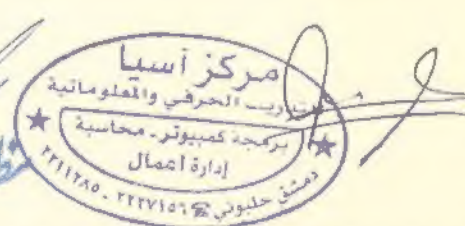 مركز آسيا
للتدريب الحرفي والمعلوماتية
برمجة كمبيوتر - محاسبة
إدارة أعمال
دمشق حلبوني ☎ ٢٢٢٧١٥٦ - ٢٢١١٢٨٥